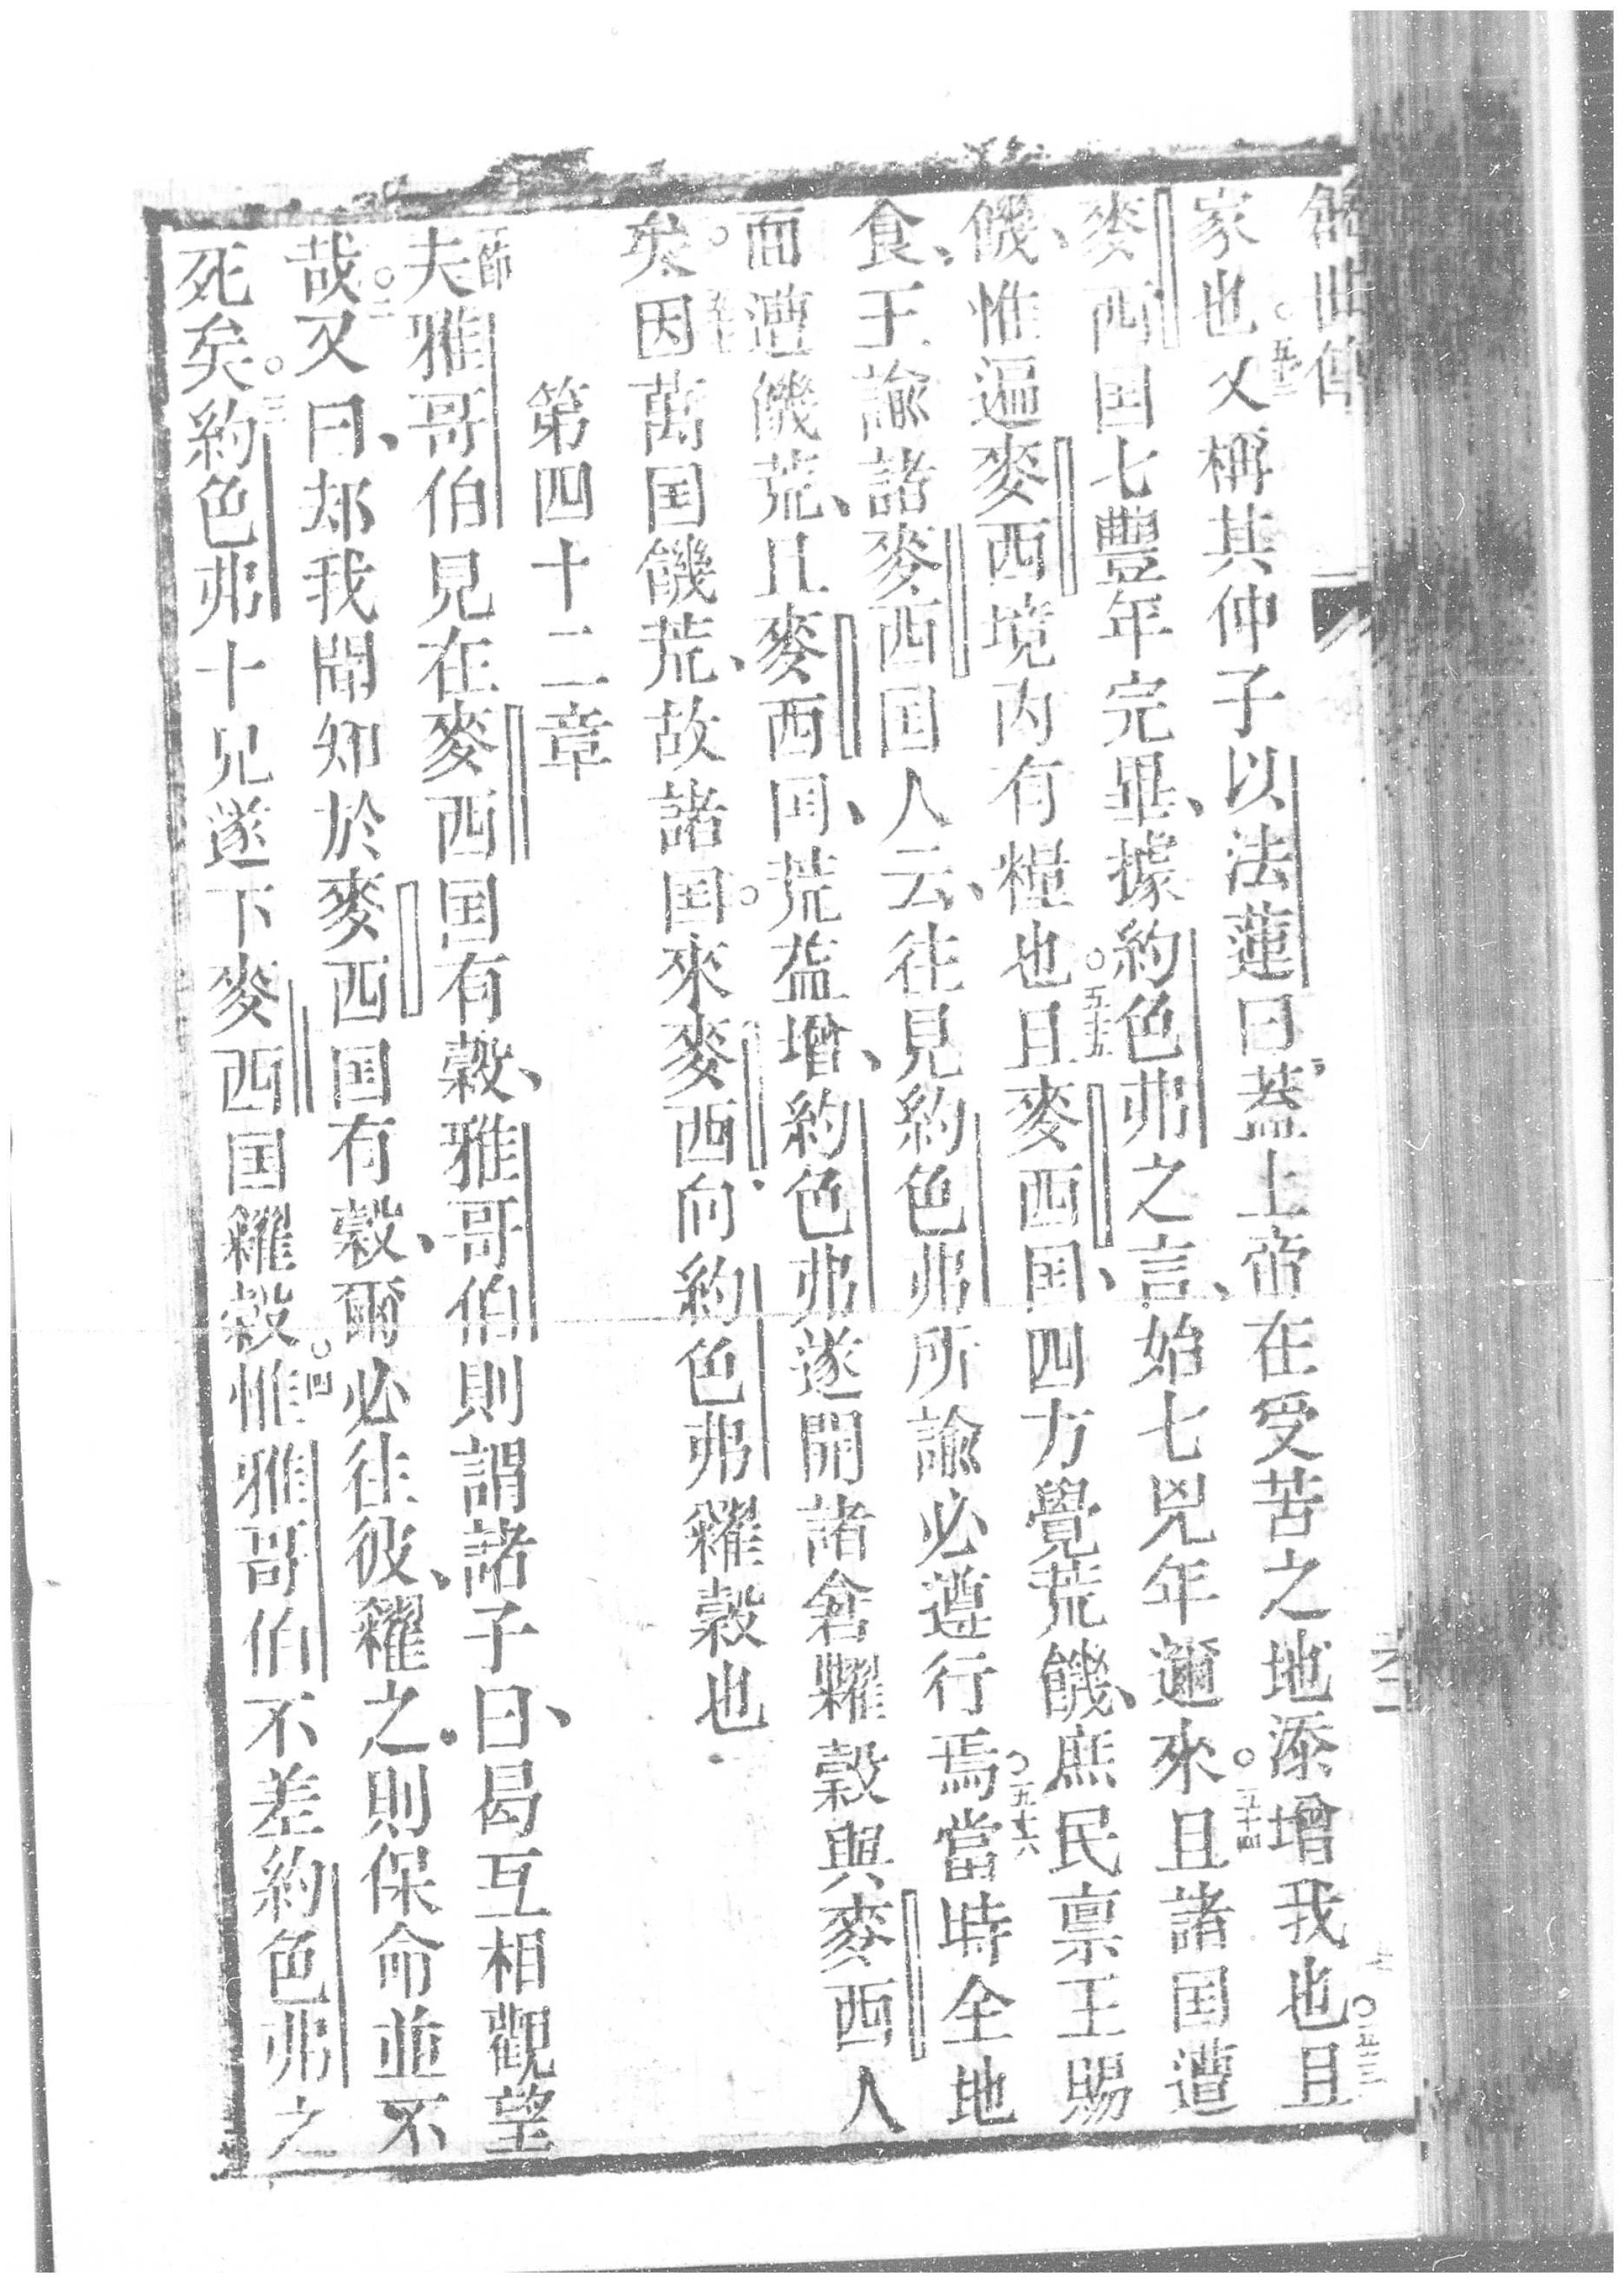 創世傳
家也○五十二又稱其仲子以法蓮曰、蓋上帝在受苦之地添增我也○五十三且
麥西国七豐年完畢、據約色弗之言、始七兇年邇來○五十四且諸国遭
饑、惟遍麥西境内有糧也○五十五且麥西国、四方覺荒饑、庶民禀王賜
食、王諭諸麥西国人云、往見約色弗所諭必遵行焉○五十六當時全地
面遭饑荒、且麥西国、荒益增、約色弗遂開諸倉糶穀與麥西人
矣○因萬国饑荒、故諸国來麥西向約色弗糴穀也
第四十二章
夫雅哥伯見在麥西国有穀、雅哥伯則謂諸子曰、曷互相觀望
哉○二又曰、却我聞知於麥西国有穀、爾必往彼、糴之、則保命並不
死矣○三約色弗十兄遂下麥西国糴穀○四惟雅哥伯不差約色弗之